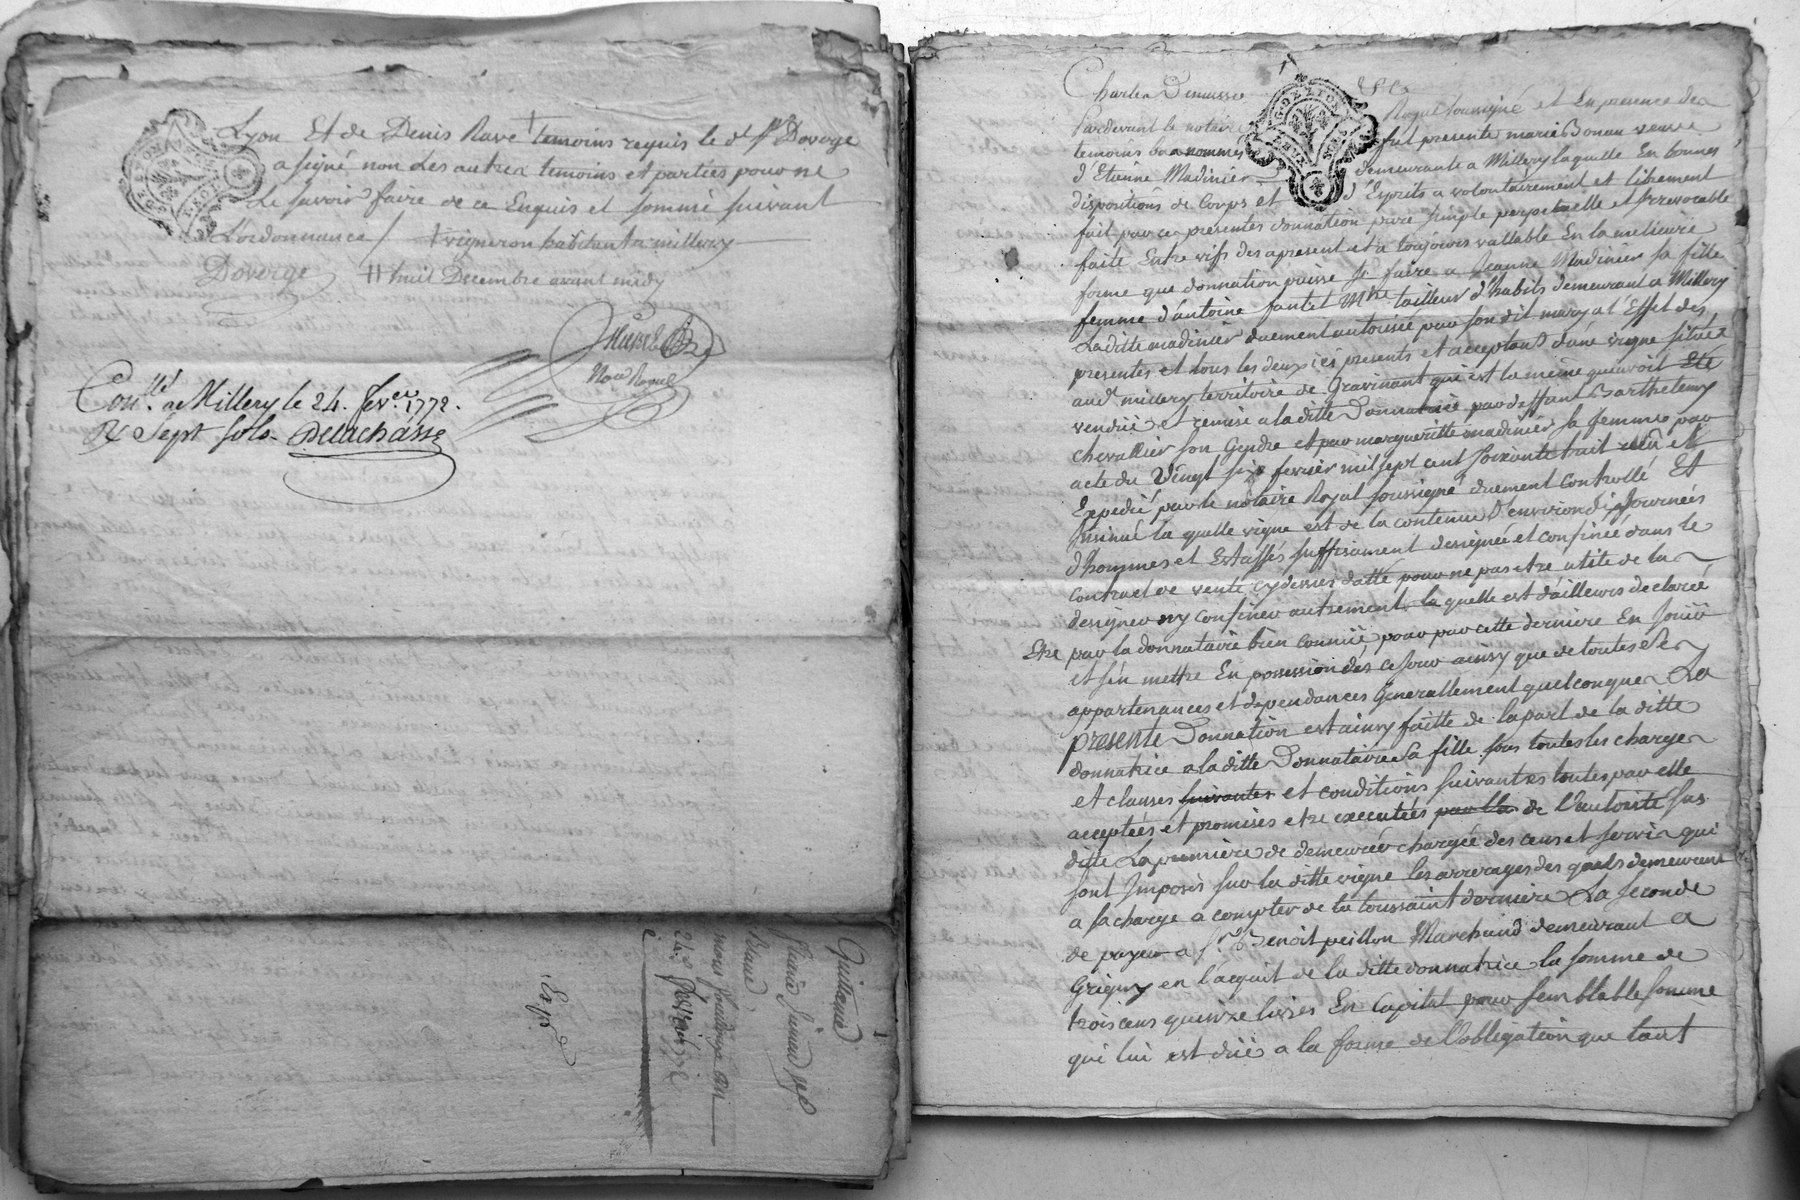 Lyon Et de Denis Rave † temoins requis le d. Sr Doverge
a signé non Les autres temoins et parties pour ne
Le savoir faire de ce Enquis et sommé suivant
L'ordonnance / † vigneron habitant a millery
Doverge # huit Decembre avant midy
Nore Royal
Conllé. a Millery le 24. fevrer. 1772.
Rx Sept sols. Delachasse
Quittance
Blanc
24e fevrier 1772
Exp.é
Pardevant le notaire Royal soussigné et En presence des
temoins bas nommes fut presente marie Bonau veuve
d'Etienne Madinier demeurante a Millery laquelle En bonnes
dispositions de Corps et d'Esprits a volontairement et librement
fait par ces presentes donnation pure simple perpetuelle et Irrevocable
faite Entre vifs des apresent et a toujours vallable En la melieure
forme que donnation puisse se faire a Jeanne Madinier sa fille
femme d'antoine fantet Mtre tailleur d'habits demeurant a Millery
La ditte madinier duement autorisée par son dit mary a l'Effet des
presentes et tous les deux ici presents et acceptans d'une vigne située
aud millery territoire de Gravinant qui est la même qu'avoit Eté
vendüe et remise a la ditte Donnatrice par deffunt Barthelemy
chevallier son Gendre et par marguerite madinier sa femme par
acte du Vingt six fevrier mil sept cent soixante huit reçu et
Expedié par le notaire Royal soussigné duement Controllé Et
Insinué la quelle vigne est de la contenue D'environ dix Journées
d'hommes et Est assés suffisament designée et confinée dans le
contract de vente cy dessus datté pour ne pas etre utile de la
designer ny confiner autrement la quelle est d'ailleurs declarée
Etre par la donnataire bien connüe pour par cette derniere En Jouir
et s'en mettre En possession dés ce Jour ainsy que de toutes Ses
appartenances et dependances Generallement quelconques La
presente Donnation est ainsy faitte de la part de la ditte
donnatrice a la ditte Donnataire Sa fille sous toutes les charges
et clauses suivantes et conditions suivantes toutes par elle
acceptées et promises etre executées par la de l'autorité sus
ditte La premiere de demeurer chargée des cens et servis qui
sont Imposés sur la ditte vigne les arrerages des quels demeurent
a sa charge a compter de la toussaint derniere La seconde
de payer a Sr. Benoit peillon Marchand demeurant a
Grigny en l'acquit de la ditte donnatrice la somme de
trois cens quinze livres En Capital pour semblable somme
qui lui est düe a la forme de l'obligation que tant